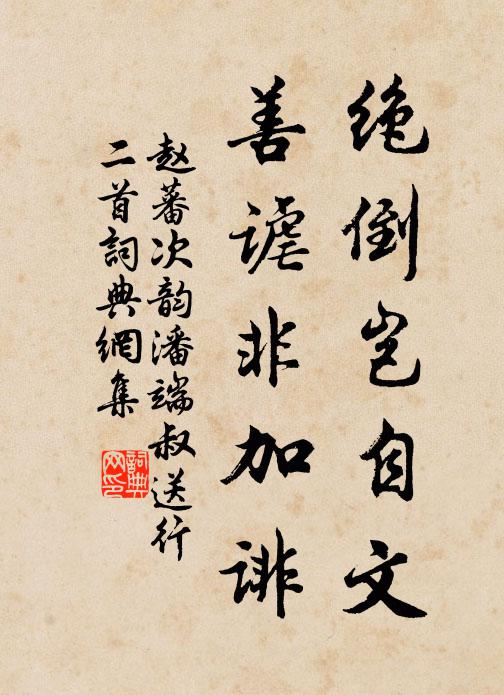 绝倒岂自文
善谑非加诽
赵蕃次韵潘端叔送行
二首詞典網集
詞典
网印